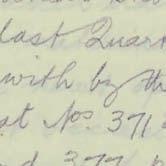 last Quart
with by th
at Nos. 371
d 377